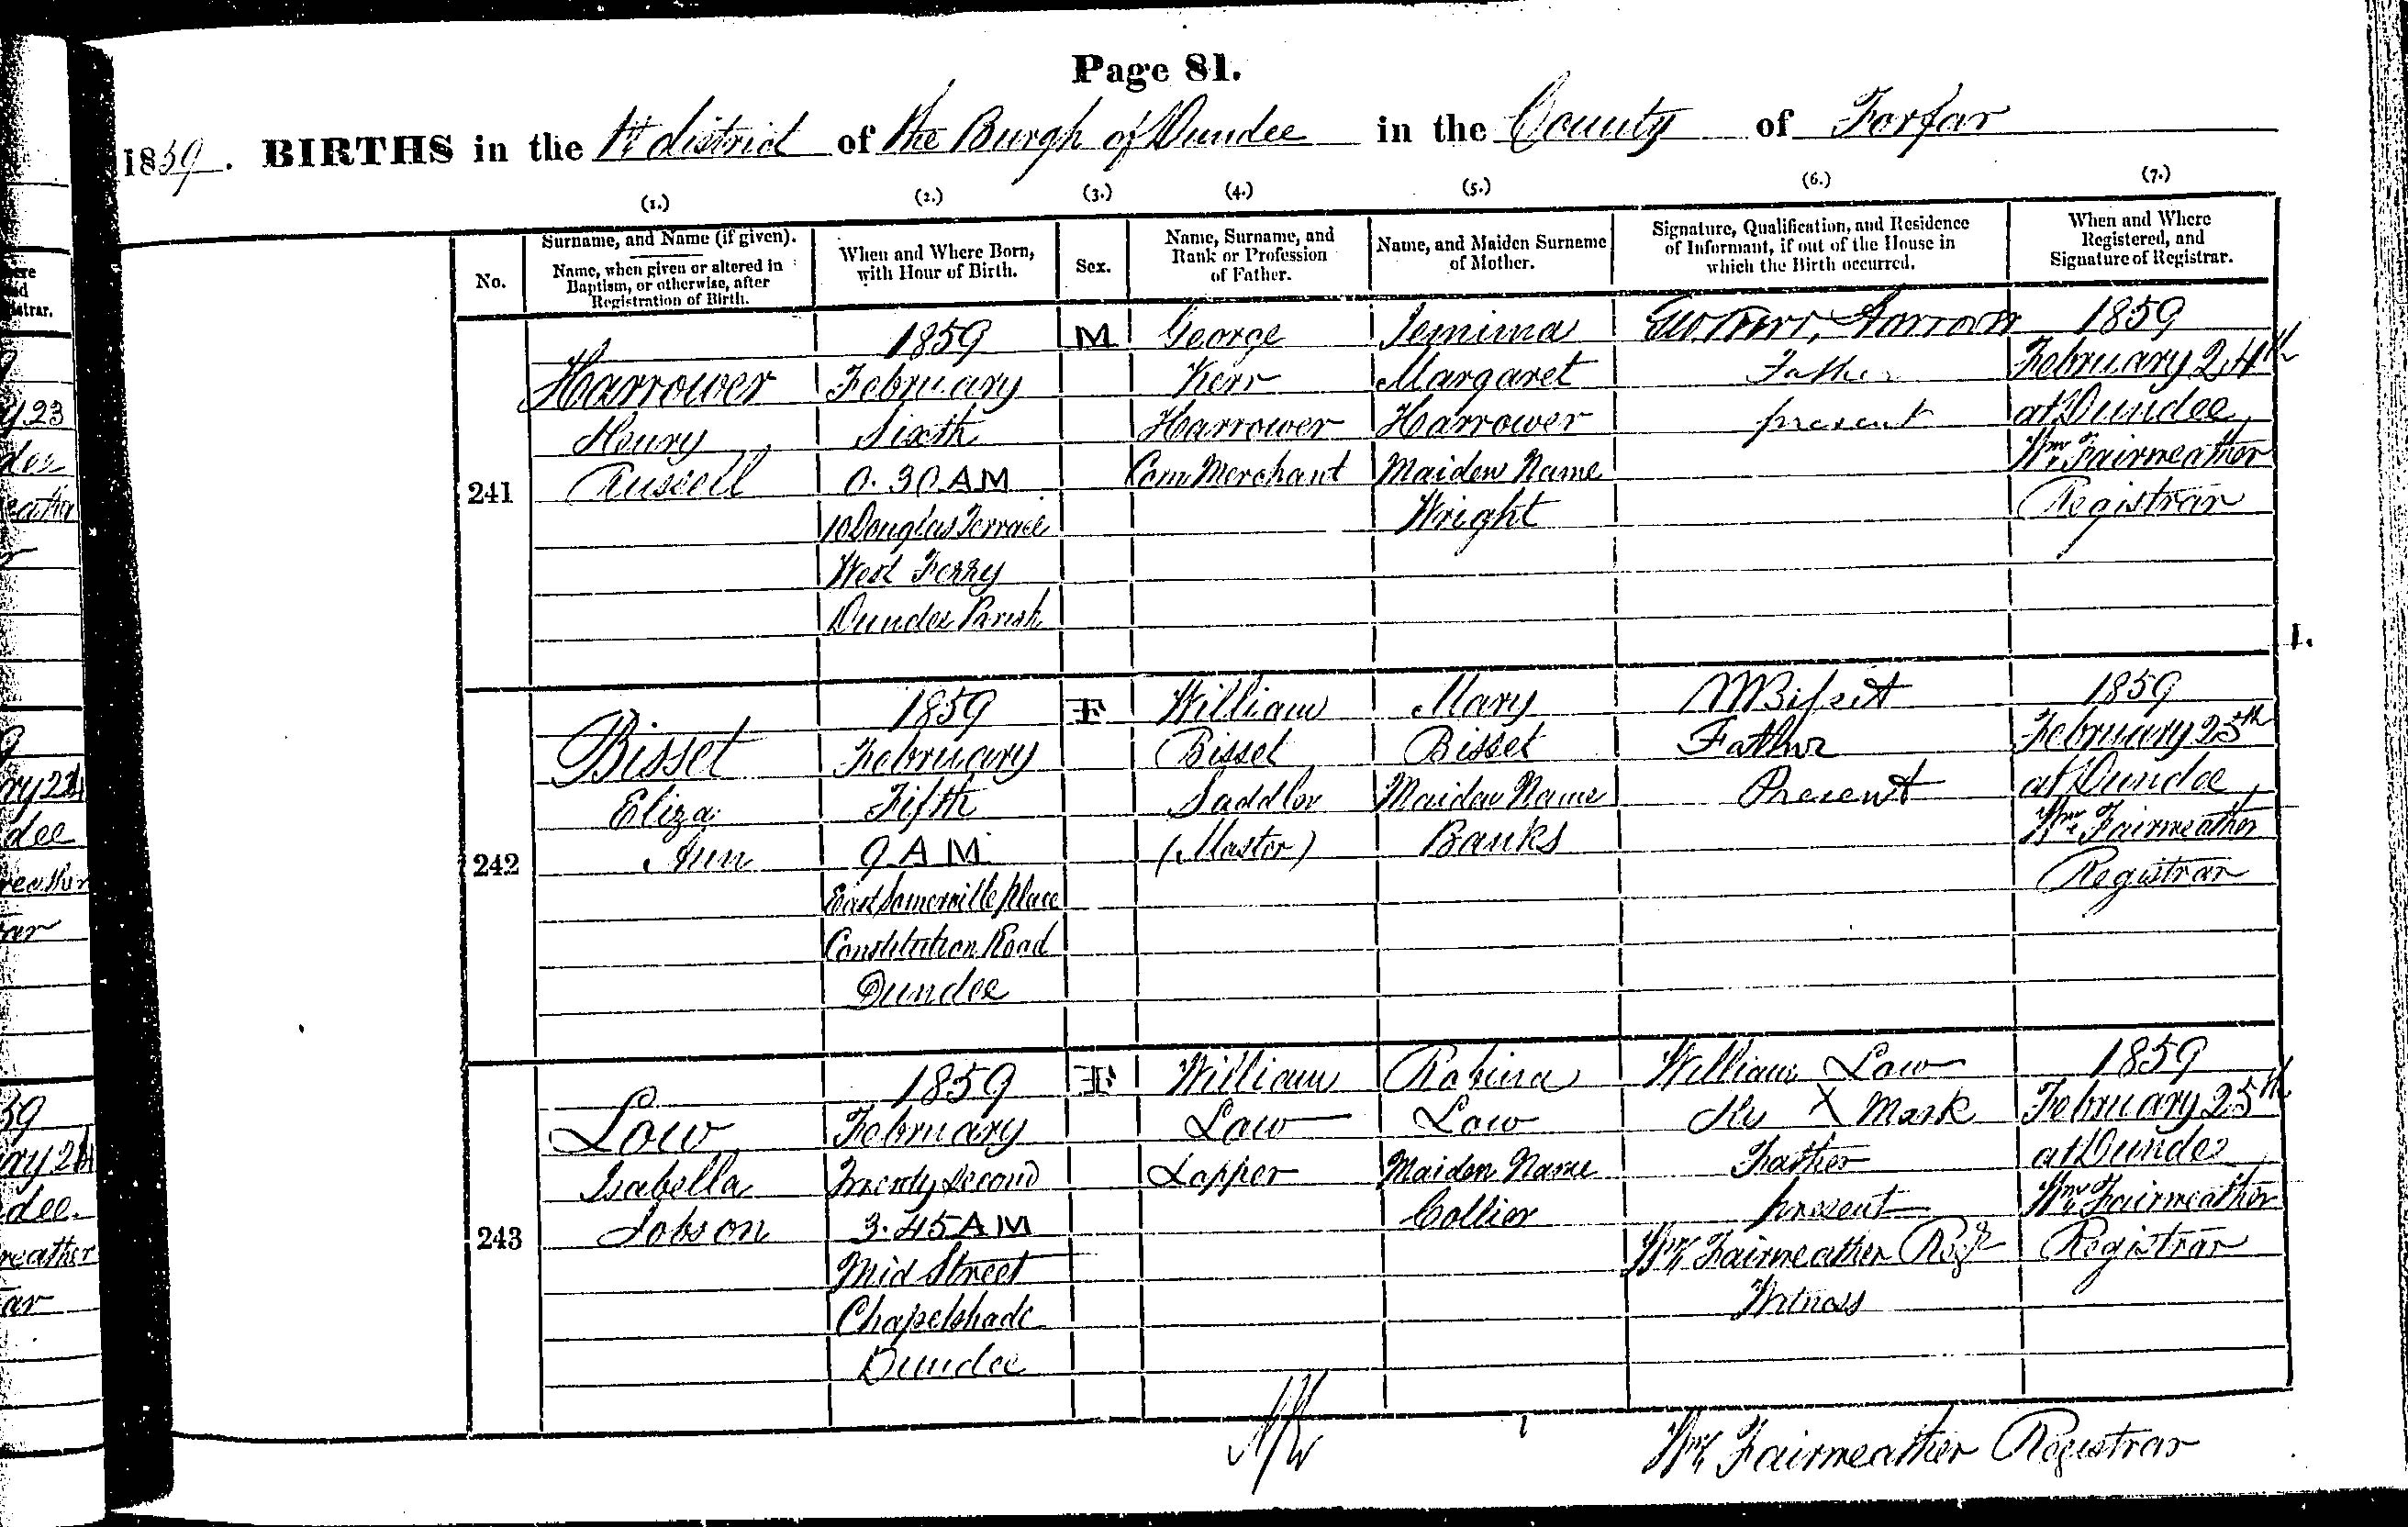 Page 81.
1859. BIRTHS in the 1st district of the Burgh of Dundee in the County of Forfar
(1.) (2.) (3.) (4.) (5.) (6.) (7.)
No.
Surname, and Name (if given).
Name, when given or altered in
Baptism, or otherwise, after
Registration of Birth.
When and Where Born,
with Hour of Birth.
Sex.
Name, Surname, and
Rank or Profession
of Father.
Name, and Maiden Surname
of Mother.
Signature, Qualification, and Residence
of Informant, if out of the House in
which the Birth occurred.
When and Where
Registered, and
Signature of Registrar.
241
Harrower
Henry
Russell
1859
February
Sixth
0.30 AM
10 Douglas Terrace
West Ferry
Dundee Parish
M
George
Kerr
Harrower
Corn Merchant
Jemima
Margaret
Harrower
Maiden Name
Wright
Father
present
1859
February 24th
at Dundee
Wm. Fairweather
Registrar
242
Bisset
Eliza
Ann
1859
February
Fifth
9 AM
East Somerville place
Constitution Road
Dundee
F
William
Bisset
Saddler
(Master)
Mary
Bisset
Maiden Name
Banks
W Bisset
Father
Present
1859
February 25th
at Dundee
Wm. Fairweather
Registrar
243
Low
Isabella
Jobson
1859
February
Twenty second
3.45 AM
Mid Street
Chapelshade
Dundee
F
William
Low
Lapper
Robina
Low
Maiden Name
Collier
William Low
His X Mark
Father
present
Wm. Fairweather Regr
Witness
1859
February 25th
at Dundee
Wm. Fairweather
Registrar
Wm. Fairweather Registrar
1.